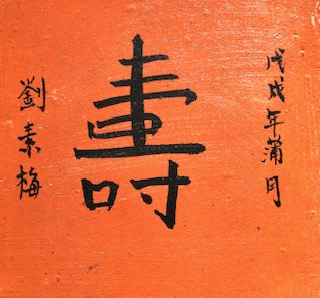 戊戌年蒲月
壽
劉素梅